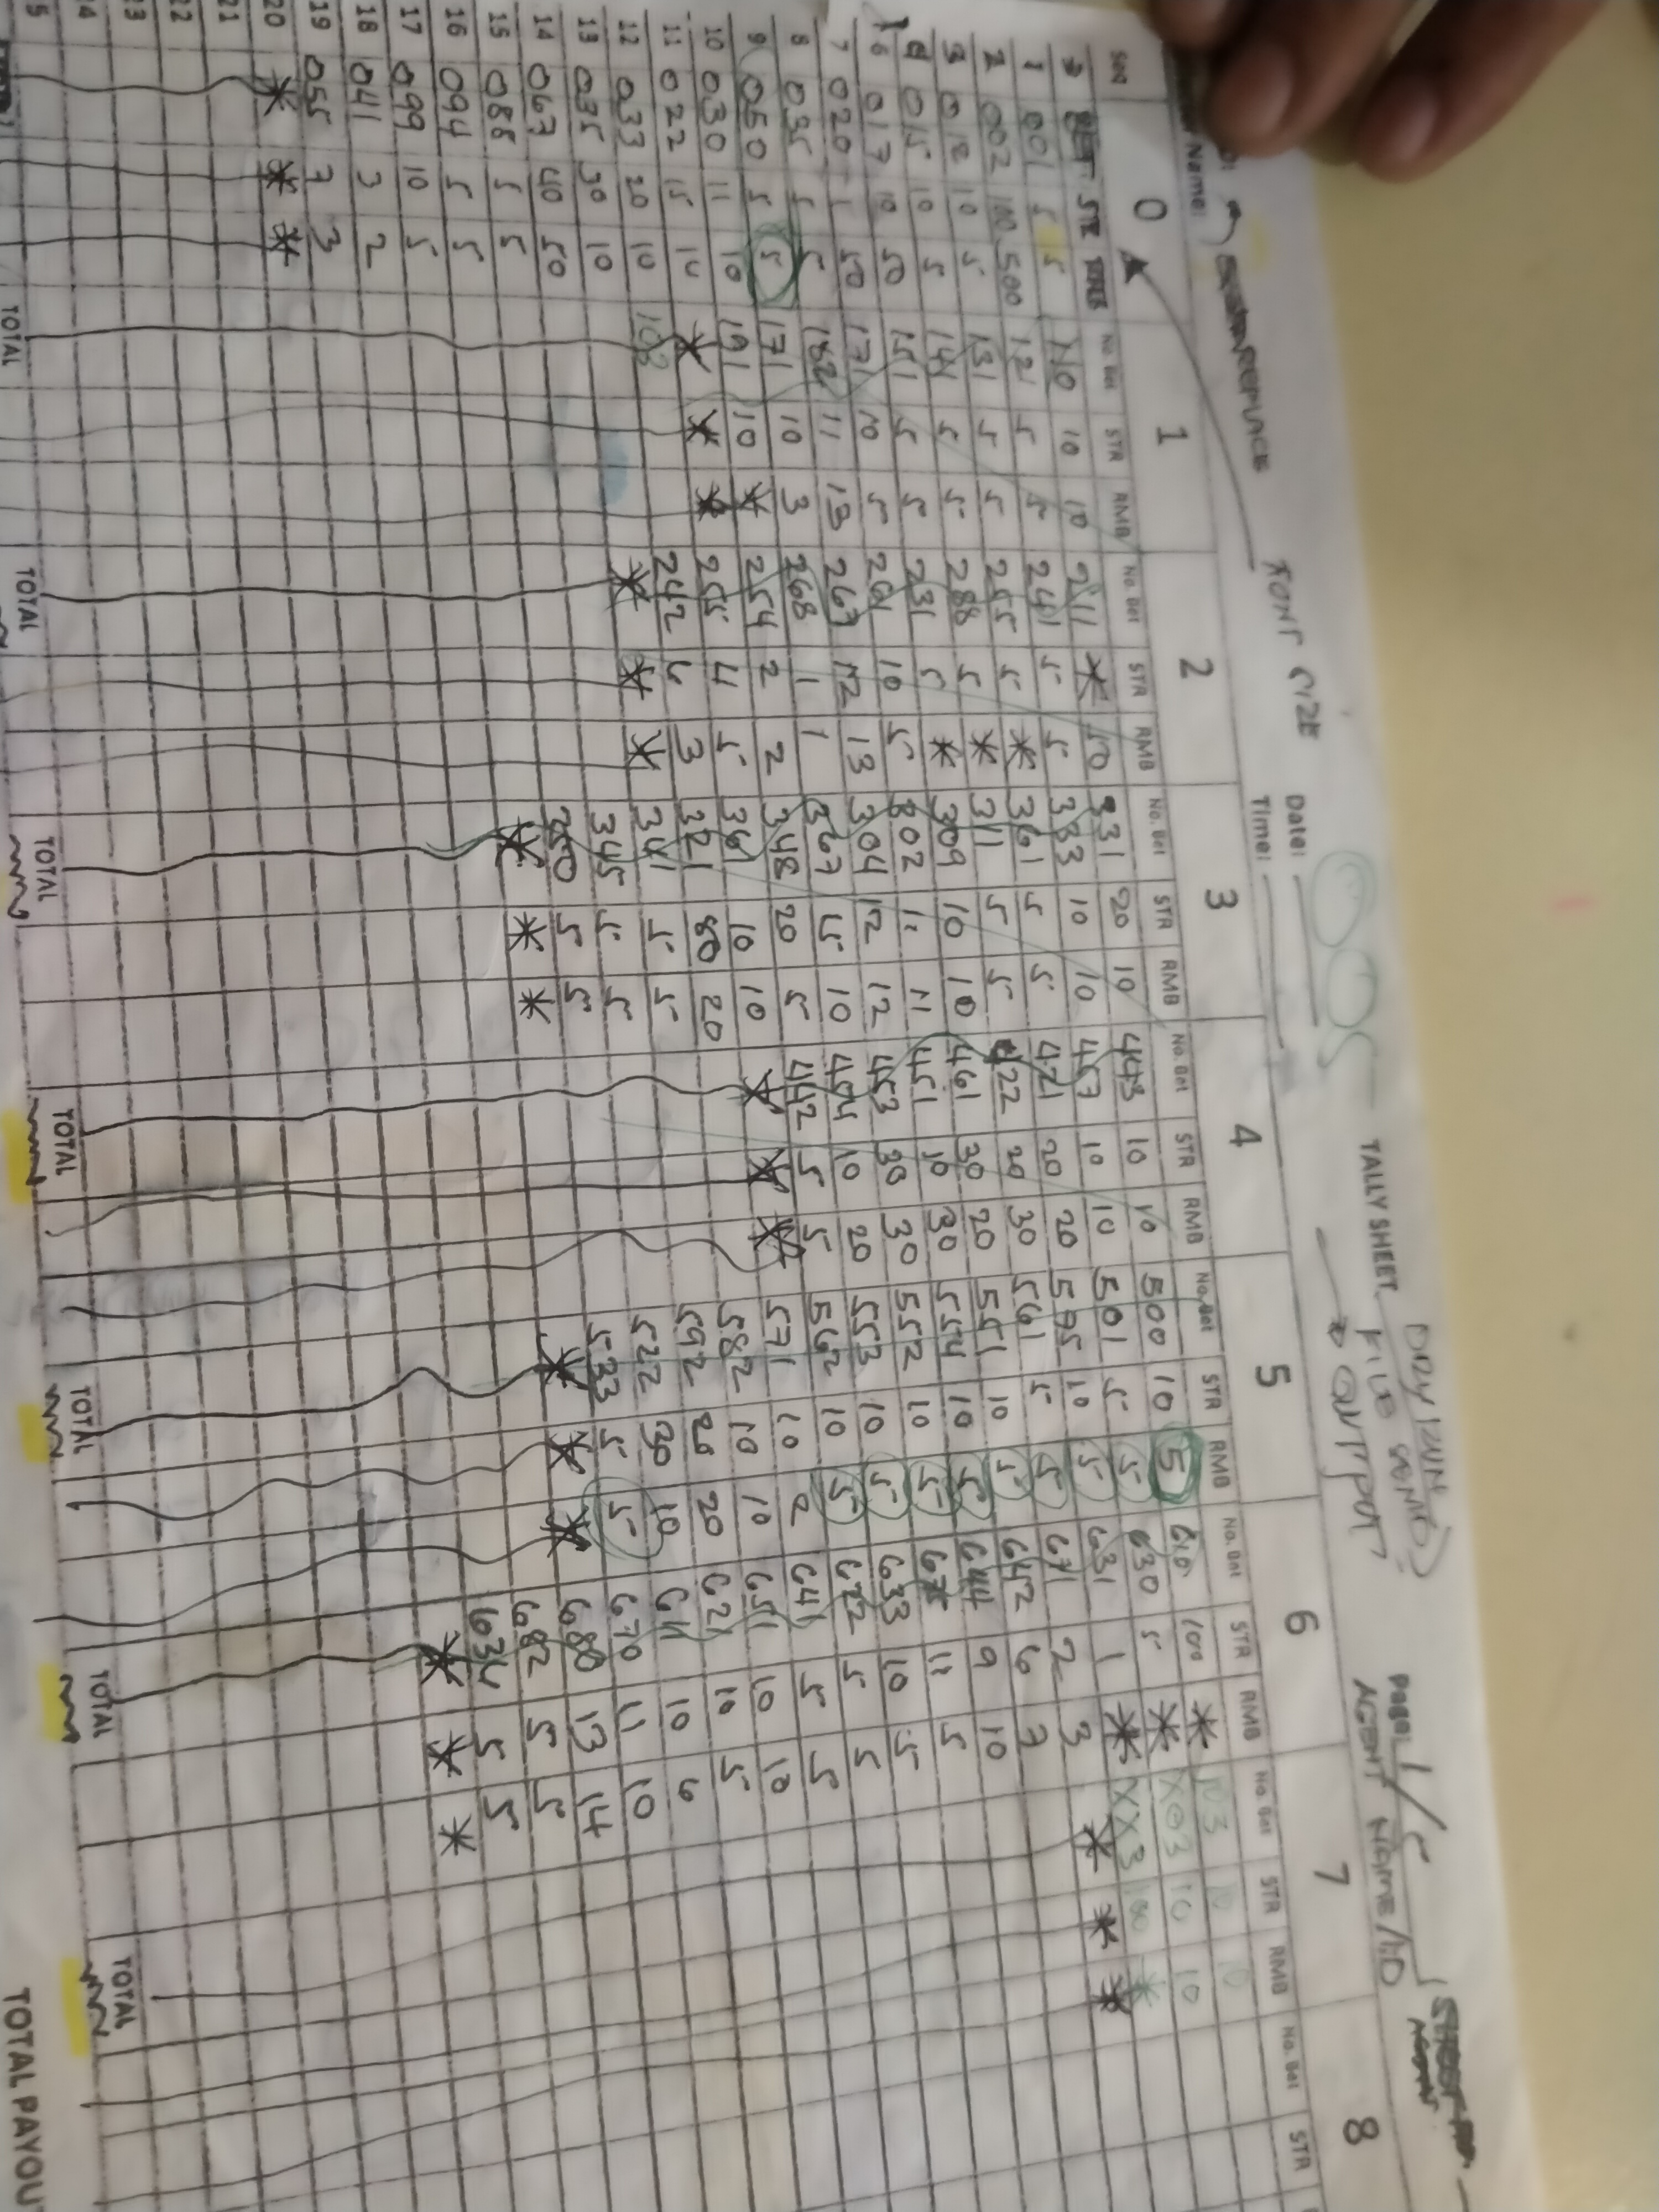 Name:
REPLACE
FONT SIZE
Date:
Time:
TALLY SHEET
DRY RUN
FILE
OUTPUT
Page: 1/
AGENT NAME/ID
0 1 2 3 4 5 6 7 8
SEQ BET STR No Bet STR RMB No. Bet STR RMB No. Bet STR RMB No. Bet STR RMB No. Bet STR RMB No. Bet STR RMB No. Bet STR RMB No. Bet STR
001 5 5 110 10 10 211 * 10 331 20 10 443 10 10 500 10 5 610 100 * 103 10 10
1 002 100 500 121 5 5 241 5 5 333 10 10 467 10 10 501 5 5 630 5 * X03 10 10
2 018 10 5 131 5 5 255 5 * 361 5 5 421 20 20 595 10 5 631 1 * XX3 100 *
3 015 10 5 141 5 5 288 5 * 311 5 5 422 20 30 561 5 5 671 2 3 * * *
017 10 50 151 5 5 231 5 * 309 10 10 461 30 20 551 10 5 642 6 3
6 020 50 171 10 5 261 10 5 302 11 11 451 10 30 554 10 5 644 9 10
7 035 5 5 182 11 13 267 12 13 304 12 12 453 30 30 552 10 5 11 5
8 050 5 5 171 10 3 268 1 1 367 15 10 454 10 20 553 10 5 633 10 5
9 030 11 10 191 10 * 254 2 2 348 20 5 442 5 5 562 10 5 622 5 5
10 022 15 10 * * * 255 4 5 361 10 10 * * * 571 10 2 641 5 5
11 033 20 10 102 242 6 3 321 80 20 582 10 10 651 10 10
12 035 30 10 * * * 341 5 5 592 20 20 621 10 5
13 067 40 50 345 5 5 522 30 10 611 10 6
14 088 5 5 350 5 5 533 5 5 670 11 10
15 094 5 5 * * * * * * 680 13 14
16 099 10 5 682 5 5
17 041 3 2 634 5 5
18 055 3 3 * * *
19 * * *
20
21
22
23
TOTAL TOTAL TOTAL TOTAL TOTAL TOTAL TOTAL
TOTAL PAYOUT